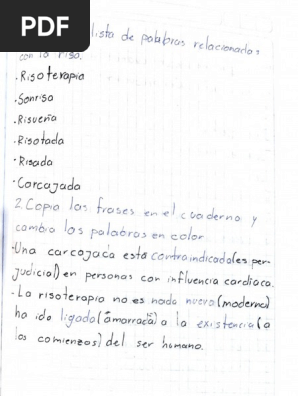 PDF
lista de palabras relacionadas
con la risa.
·Risoterapia
·Sonrisa
·Risueña
·Risotada
·Risada
·Carcajada
2.Copia las frases en el cuaderno y
cambia las palabras en color
·Una carcajada está contraindicada(es per-
judicial) en personas con influencia cardíaca.
·La risoterapia no es nada nuevo(moderno)
ha ido ligada(amarrada) a la existencia(a
los comienzos) del ser humano.